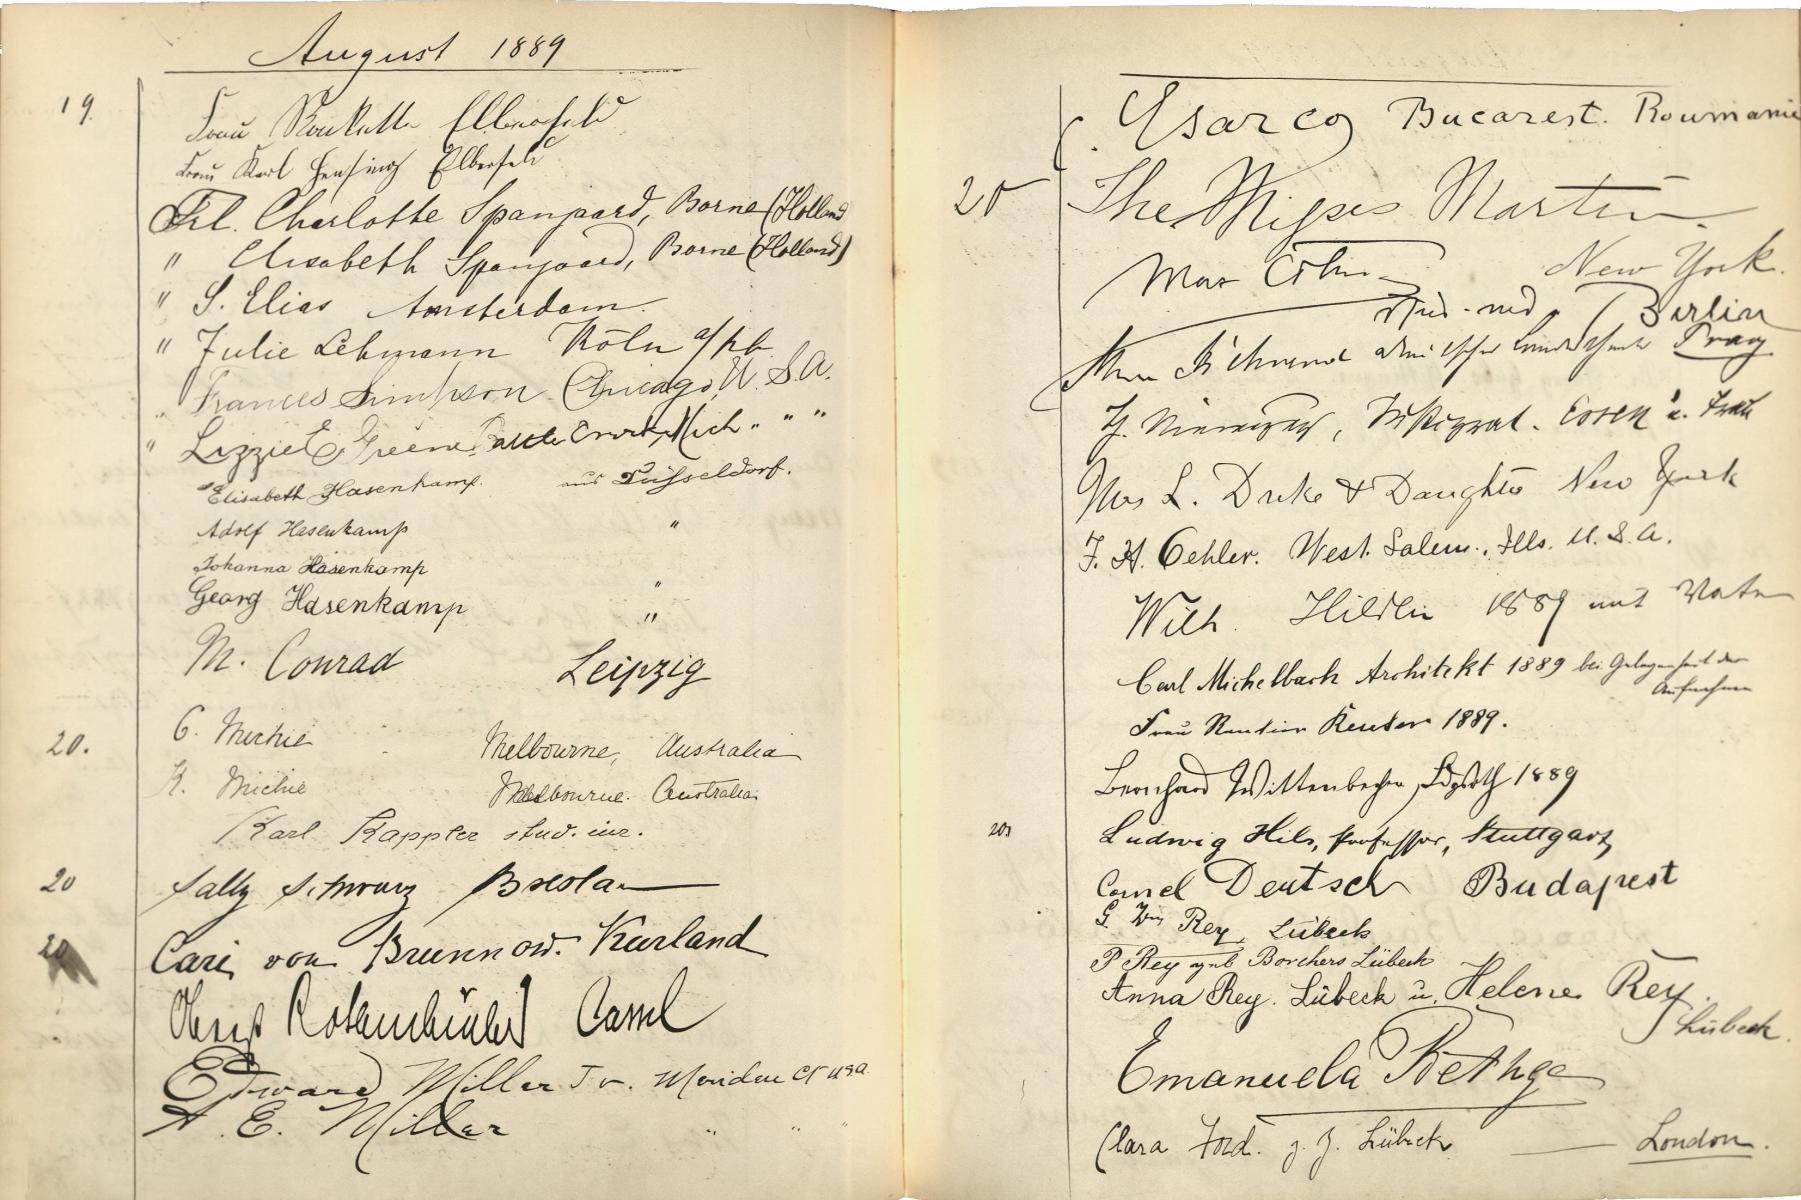 August 1889
19.
Frau Elberfeld
Frau Karl Elberfeld
Frl. Charlotte Spanjaard, Borne (Holland
" Elisabeth Spanjaard, Borne (Holland)
" S. Elias Amsterdam.
" Julie Lehmann Köln a/Rh
" Frances Simpson Chicago, U. S. A.
" Lizzie E Greene Battle Creek, Mich " " "
Elisabeth Hasenkamp. aus Düsseldorf.
Adolf Hasenkamp "
Johanna Hasenkamp "
Georg Hasenkamp "
M. Conrad Leipzig
20. C. Michie Melbourne, Australia
K. Michie Melbourne. Australia
Karl Kappler stud. iur.
20 Sally Schwarz Breslau
20 Carl von Brunnow. Kurland
Cassel
Edward Miller Jr. Meriden Ct USA.
A. E. Miller " " "
C. Esarco Bucarest. Roumanie
20 The Misses Martin
New York.
Max stud. med. Berlin
Prag
Essen u. Frau
Mrs L. Duke & Daughter New York
F. H. Oehler. West Salem., Ills. U. S. A.
Wilh. 1889 mit
Carl Michelbach Architekt 1889 bei Gelegenheit der
Aufnahme
Frau Rentier Reuter 1889.
Bernhard Wittenbecher, 1889
20. Ludwig Hils, Professor, Stuttgart
Deutsch Budapest
G Rey, Lübeck
P Rey geb Borchers Lübeck
Anna Rey. Lübeck u. Helene Rey.
Lübeck.
Emanuela Bethge
Clara Ford. z. Z. Lübeck — London.